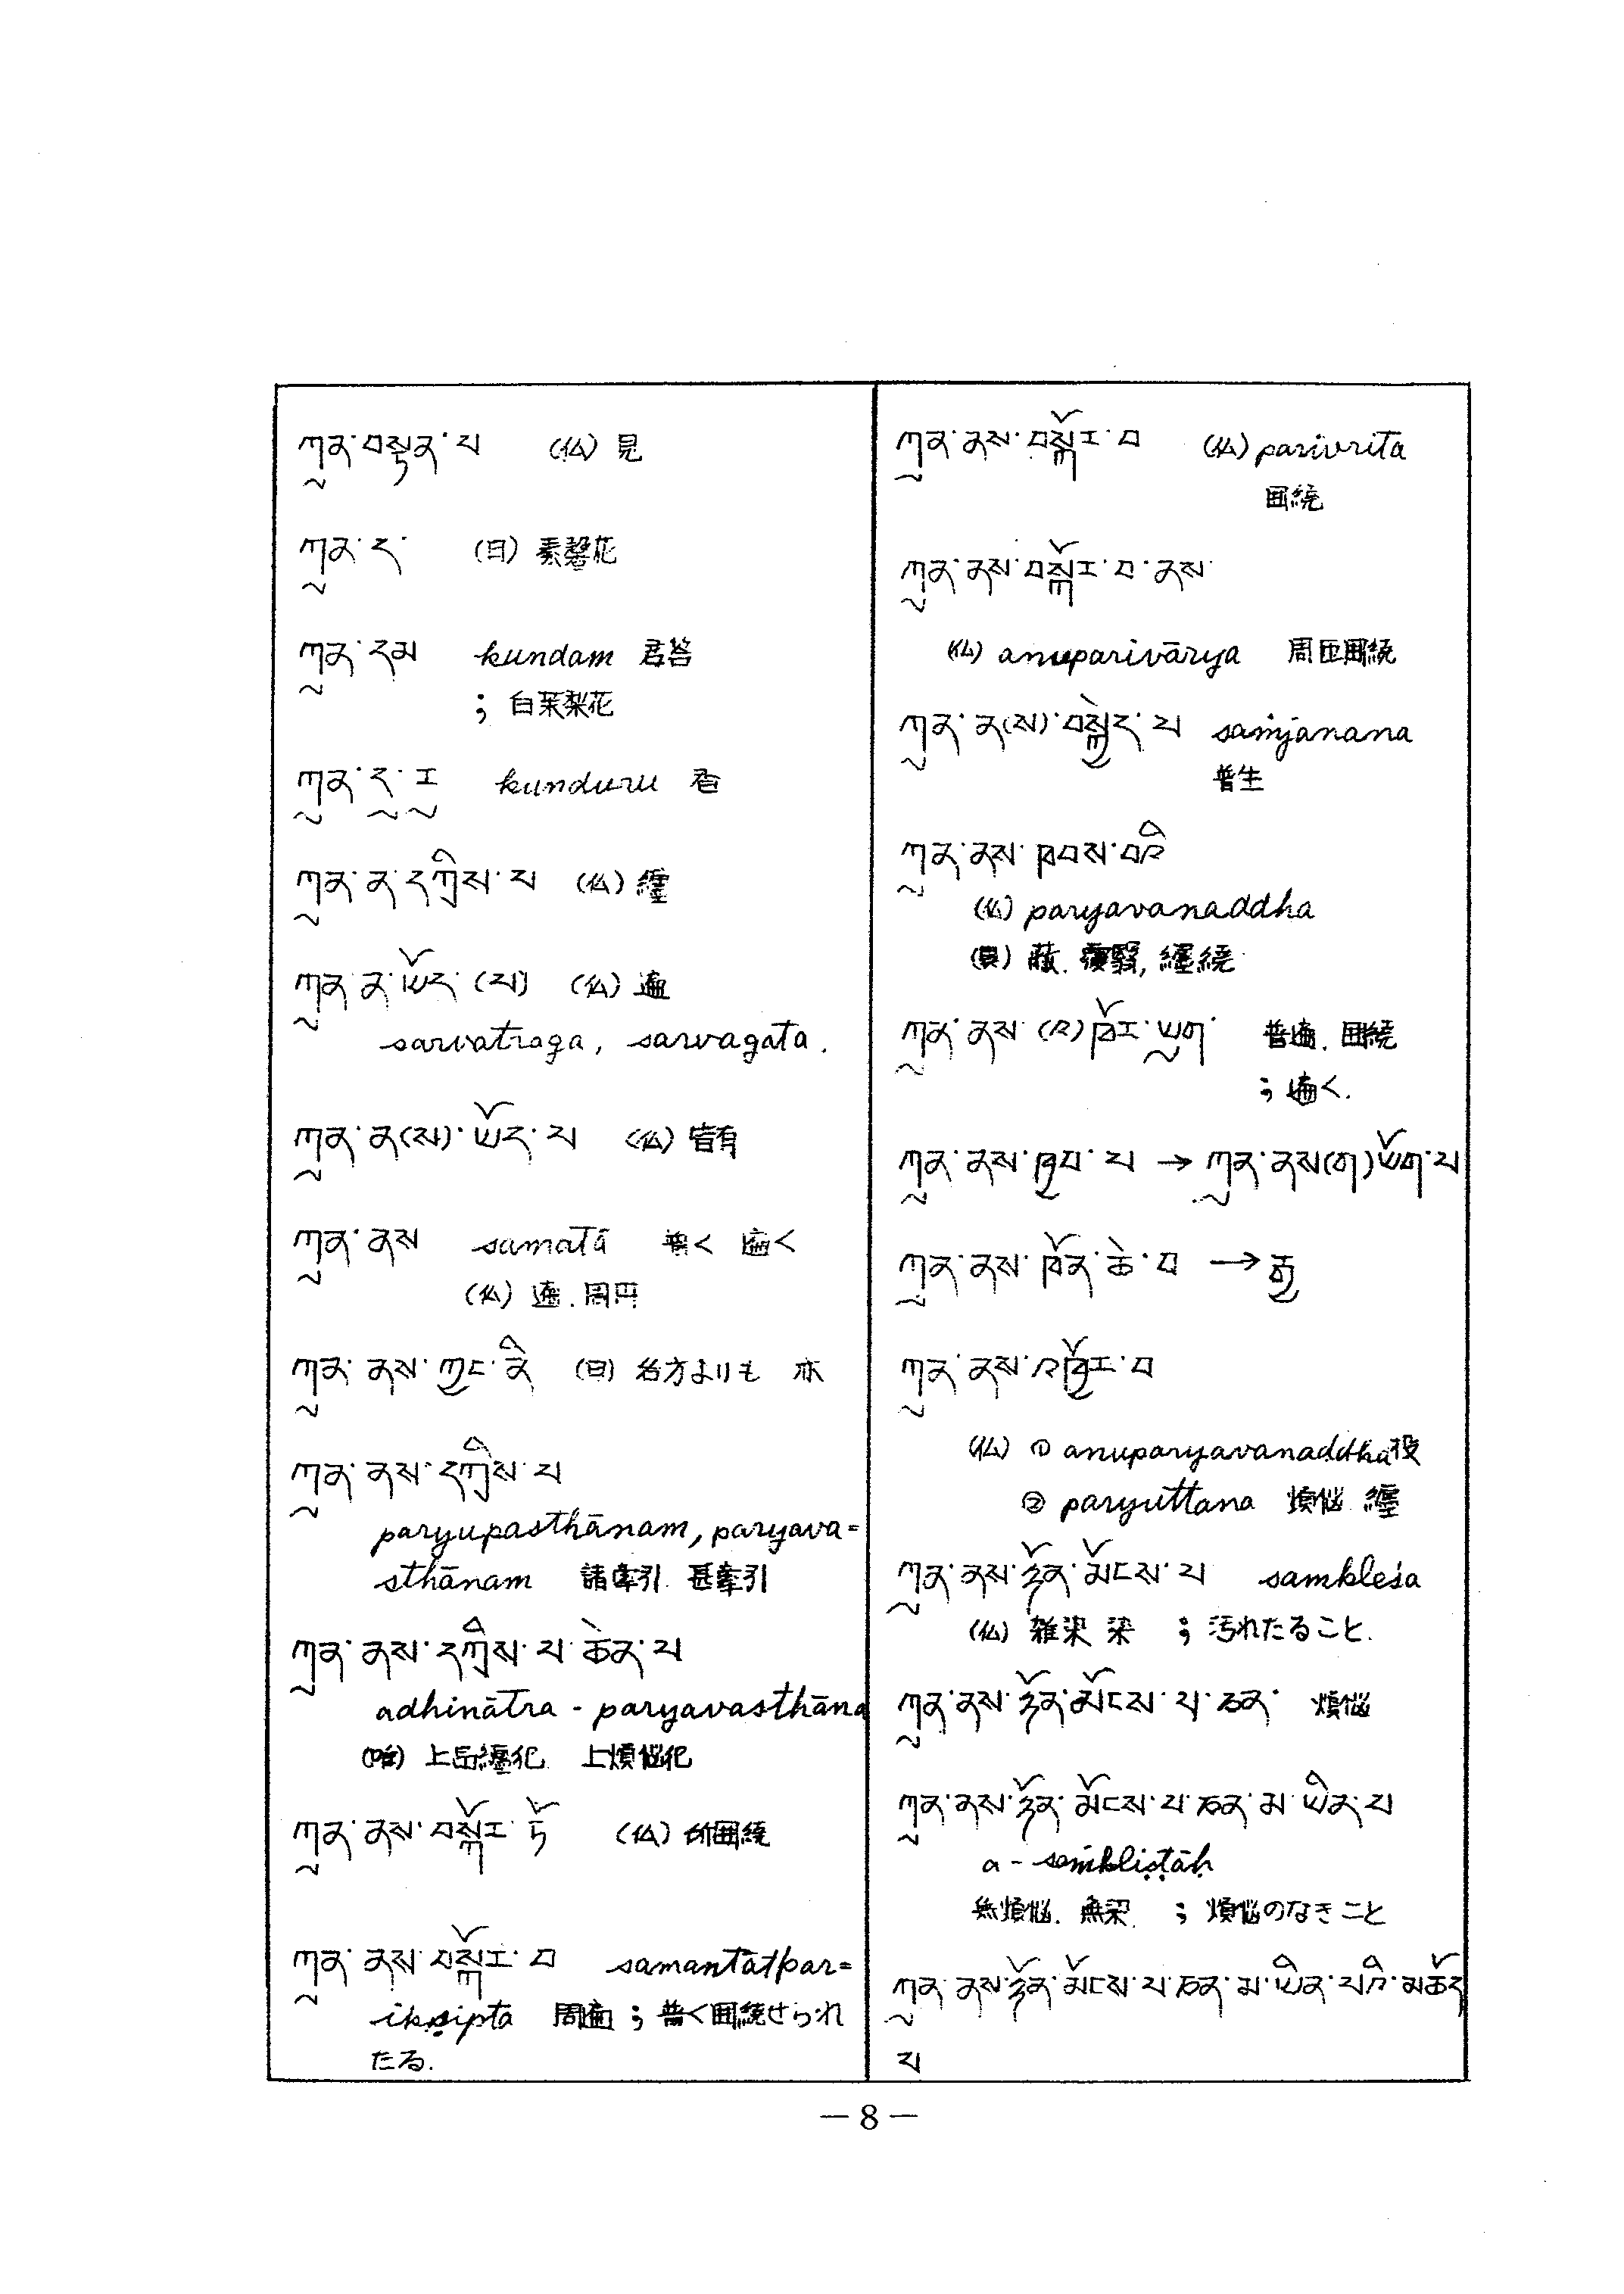 ཀུན་བསྟན་པ (仏) 見
ཀུན་ད་ (日) 素馨花
ཀུན་དམ kundam 君答
; 白茉梨花
ཀུན་དུ་རུ kunduru 香
ཀུན་ན་དཀྲིས་པ (仏) 纏
ཀུན་ན་ཡོད་(པ) (仏) 遍
sarvatraga, sarvagata.
ཀུན་ན(ས)་ཡོད་པ (仏) 皆有
ཀུན་ནས samatā 普く 遍く
(仏) 遍.周円
ཀུན་ནས་ཀྱང་ནི (日) 各方よりも 亦
ཀུན་ནས་དཀྲིས་པ
paryupasthānam, paryava=
sthānam 諸牽引. 甚牽引
ཀུན་ནས་དཀྲིས་པ་ཆེན་པ
adhinātra - paryavasthāna
上品纏犯 上煩悩犯
ཀུན་ནས་བསྐོར་ཏོ (仏) 所囲繞
ཀུན་ནས་བསྐོར་བ samantātpar=
ikṣipta 周遍 ; 普く囲繞せられ
たる.
ཀུན་ནས་བསྐོར་བ (仏) parivrita
囲繞
ཀུན་ནས་བསྐོར་བ་ནས་
(仏) anuparivārya 周匝囲繞
ཀུན་ན(ས)་བསྐྱེད་པ saṁjanana
普生
ཀུན་ནས་ཁབས་བའི
(仏) paryavanaddha
蔽. 覆翳, 纏繞
ཀུན་ནས་(འ)ཁོར་ཡུག་ 普遍. 囲繞
; 遍く.
ཀུན་ནས་ཁྱབ་པ → ཀུན་ནས(ག)ཡོག་པ
ཀུན་ནས་ཁོན་ཆེ་བ → རྒྱ
ཀུན་ནས་འཁྱོར་བ
(仏) ① anuparyavanaddha役
② paryuttana 煩悩 纏
ཀུན་ནས་ཉོན་མོངས་པ samkleśa
(仏) 雑染 染 ; 汚れたること.
ཀུན་ནས་ཉོན་མོངས་པ་ཅན་ 煩悩
ཀུན་ནས་ཉོན་མོངས་པ་ཅན་མ་ཡིན་པ
a - saṁkliṣṭāḥ
無煩悩. 無染. ; 煩悩のなきこと
ཀུན་ནས་ཉོན་མོངས་པ་ཅན་མ་ཡིན་པའི་མཆོད
པ
— 8 —